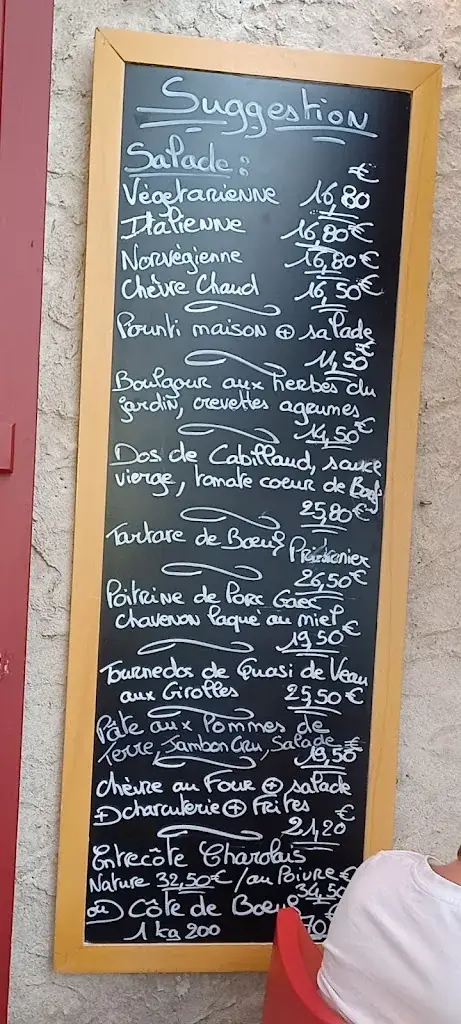 Suggestion
Salade : €
Végétarienne 16,80
Italienne 16,80€
Norvégienne 16,80€
Chèvre Chaud 16,50€
Pounti maison + salade
11,50€
Boulgour aux herbes du
jardin, crevettes agrumes
14,50€
Dos de Cabillaud, sauce
vierge, tomate coeur de Boeuf
25,80€
Tartare de Boeuf
26,50€
Poitrine de Porc Gaec
Chavenon laqué au miel
19,50€
Tournedos de Quasi de Veau
aux Girolles 25,50€
Pâté aux Pommes de
Terre, Jambon Cru, Salade €
19,50
Chèvre au Four + salade
+ charcuterie + Frites
21,20€
Entrecôte Charolais
Nature 32,50€ / au Poivre €
34,50
ou Côte de Boeuf
1 kg 200 70